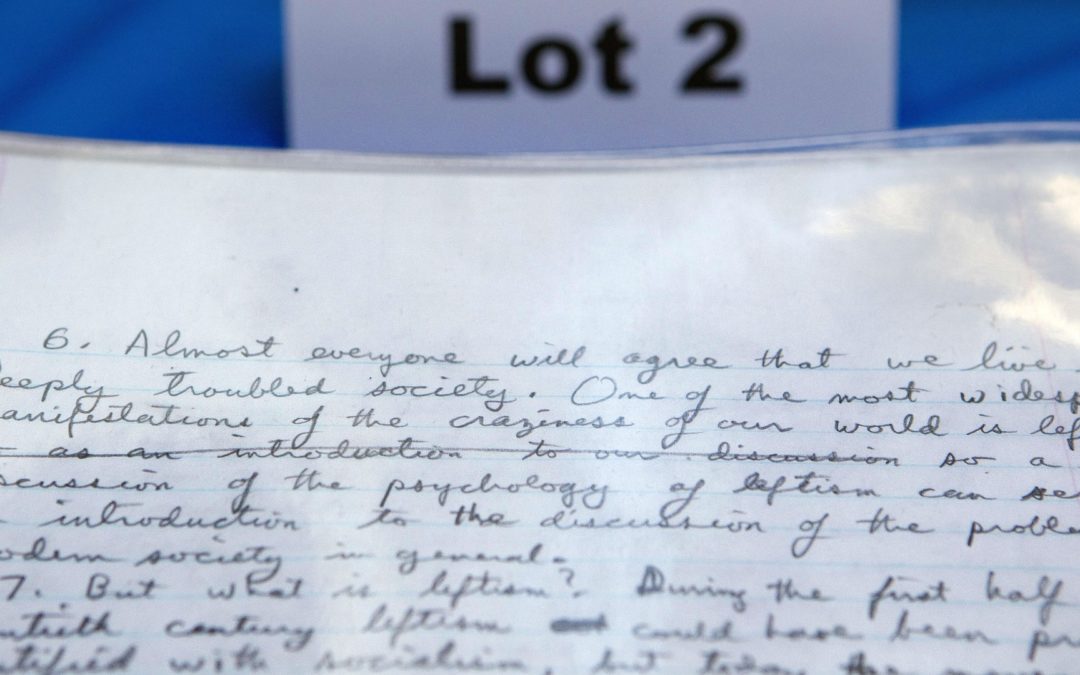 Lot 2
6. Almost everyone will agree that we live
eeply troubled society. One of the most widesp
anifestations of the craziness of our world is lef
as an introduction to our discussion so a
scussion of the psychology of leftism can se
introduction to the discussion of the proble
odern society in general.
7. But what is leftism? During the first half
ntieth century leftism could have been pr
ntified with socialism, but today the